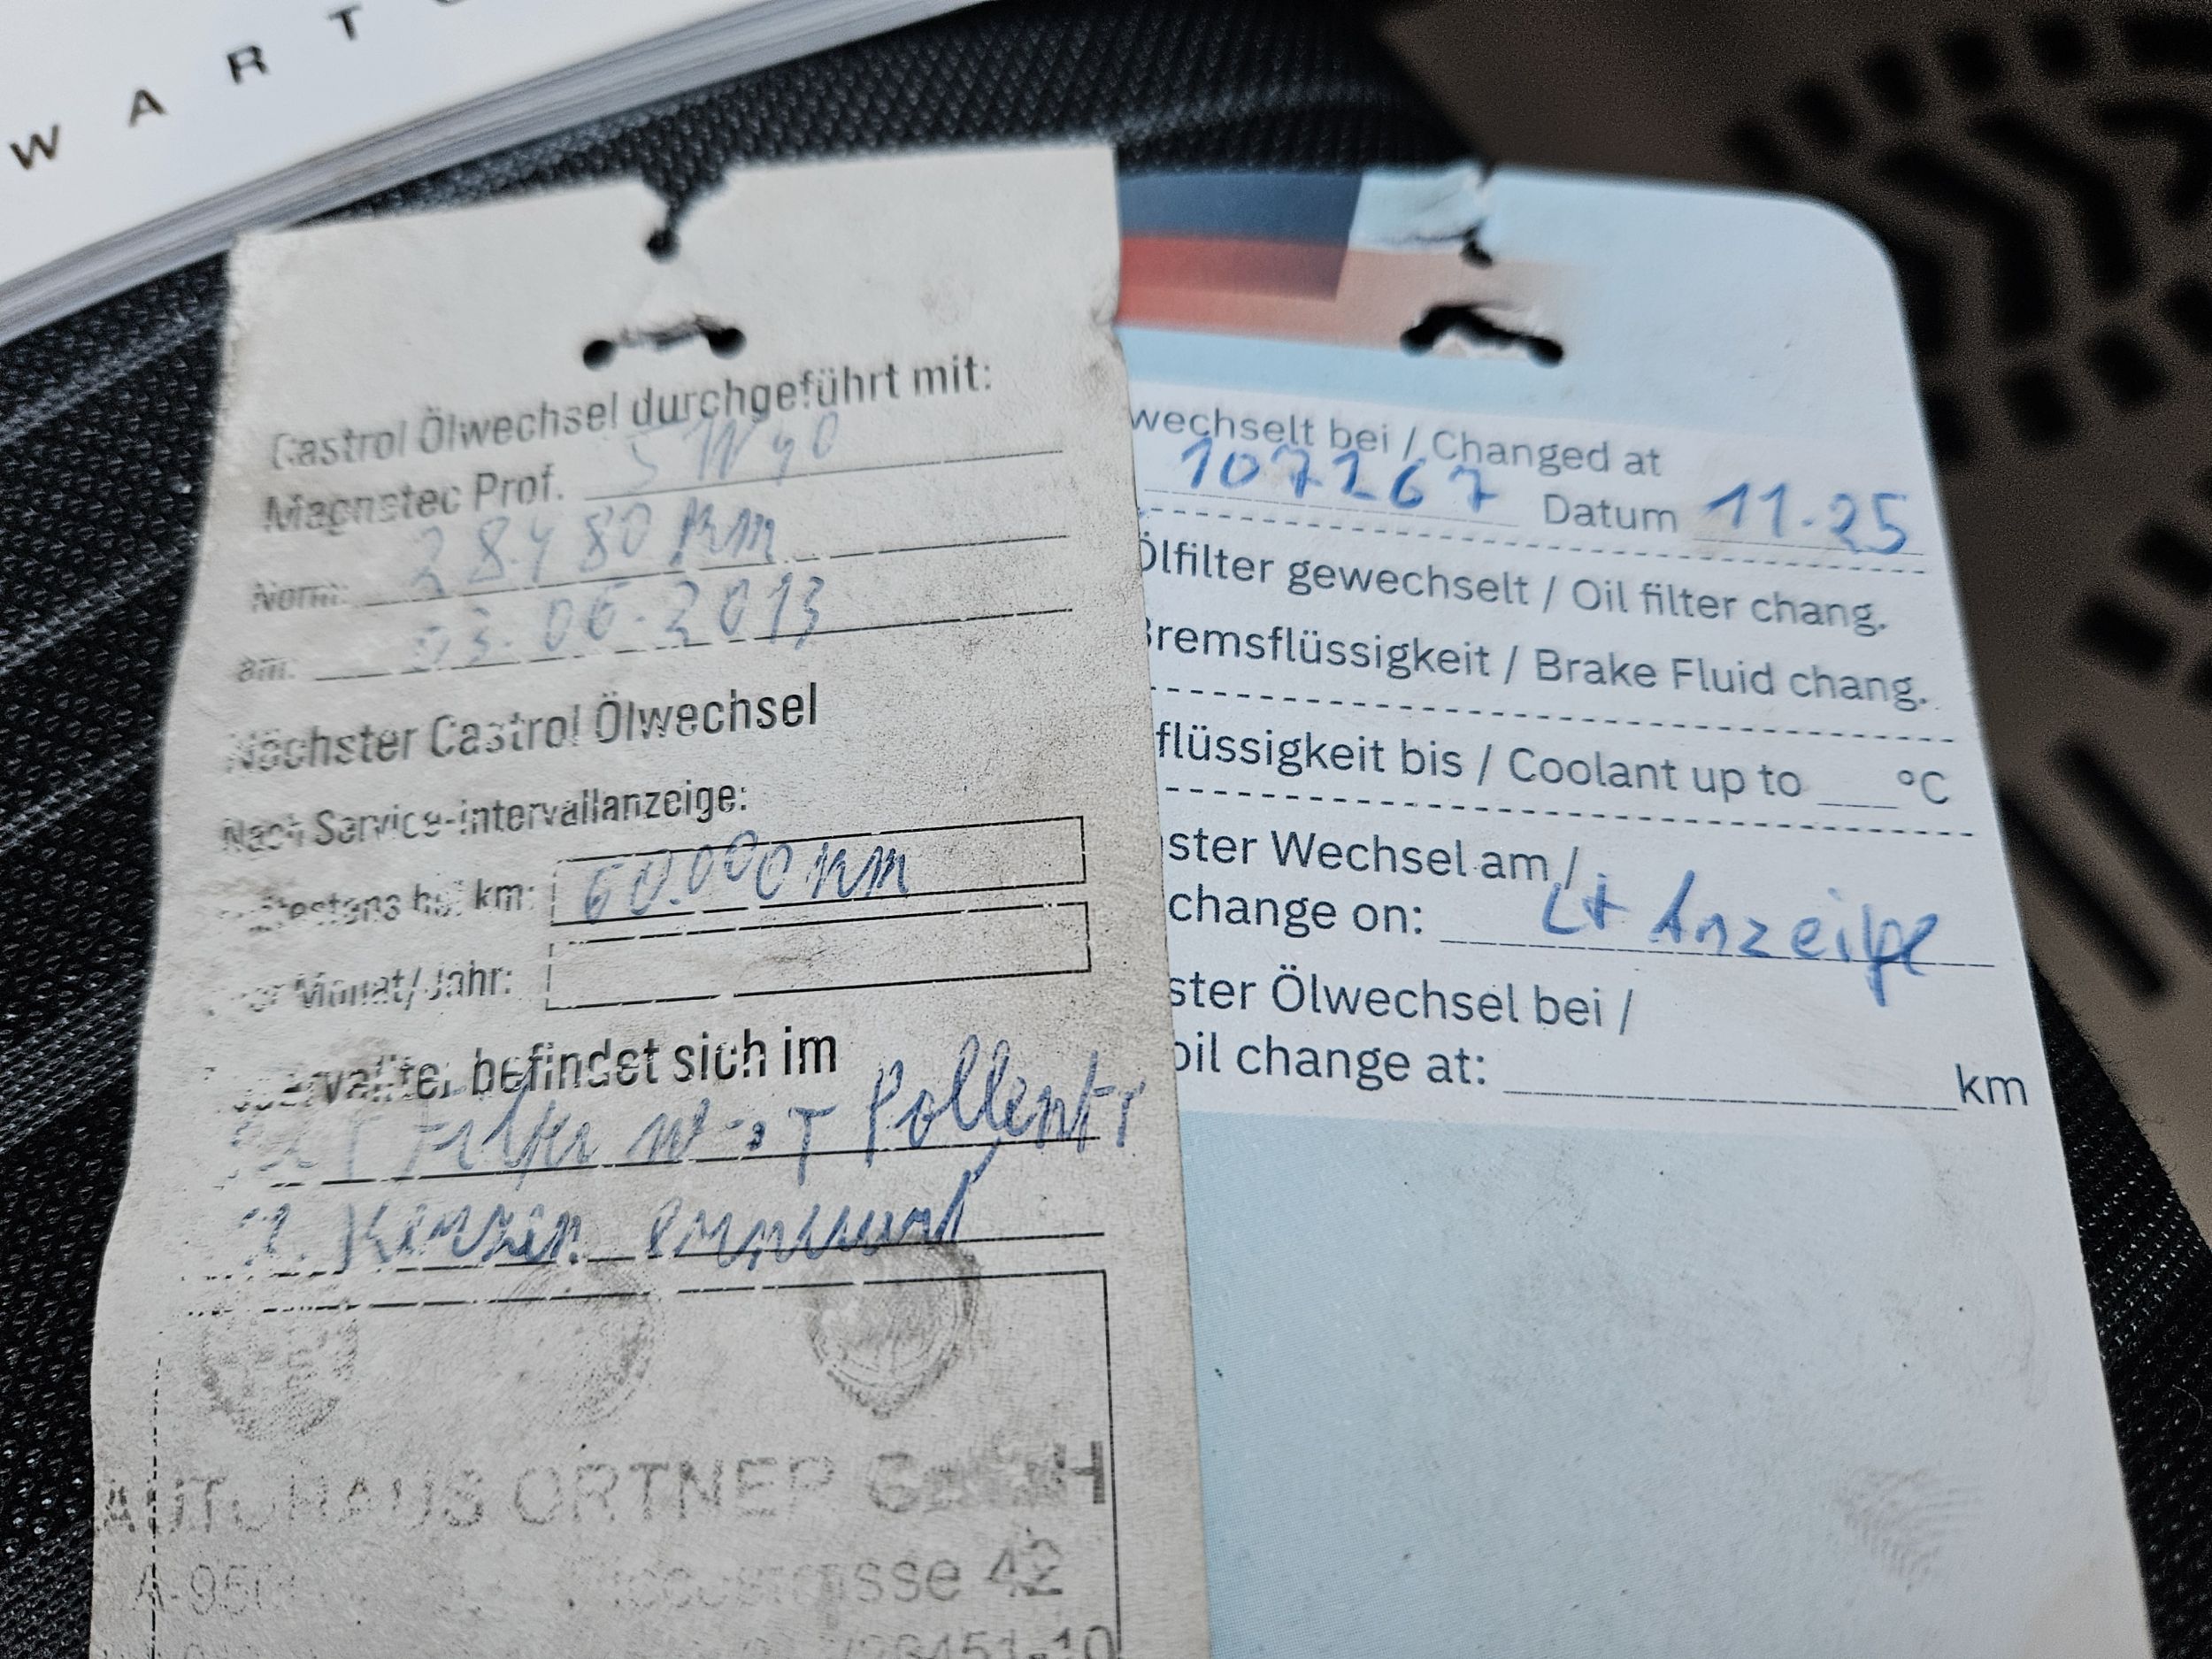 WART
Castrol Ölwechsel durchgeführt mit:
Magnatec Prof. 5W40
Norm: 28480 km
am: 03.06.2013
Nächster Castrol Ölwechsel
Nach Service-Intervallanzeige:
spätestens bei km: 60.000 km
oder Monat/Jahr:
befindet sich im
Filter Pollenf
Kerzen erneuert
AUTOHAUS ORTNER GmbH
42
wechselt bei / Changed at
107267 Datum 11.25
Ölfilter gewechselt / Oil filter chang.
Bremsflüssigkeit / Brake Fluid chang.
flüssigkeit bis / Coolant up to ___°C
ster Wechsel am /
change on: Lt Anzeige
ster Ölwechsel bei /
oil change at: ___km